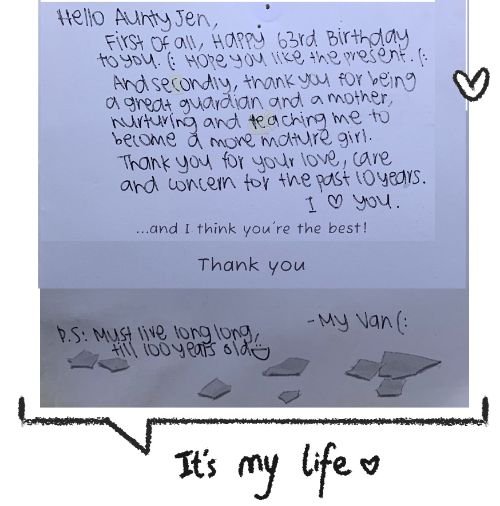 Hello Aunty Jen,
First of all, Happy 63rd Birthday
to you. (: Hope you like the present. (:
And secondly, thank you for being
a great guardian and a mother,
nurturing and teaching me to
become a more mature girl.
Thank you for your love, care
and concern for the past 10 years.
I ♡ you.
...and I think you're the best!
Thank you
- My Van (:
P.S: Must live long long,
till 100 years old☺
It's my life ♡